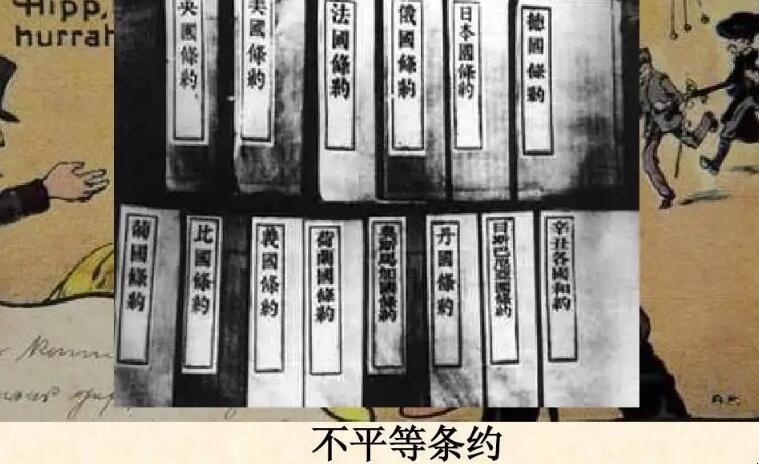 Hipp,
hurrah
英國條約
美國條約
法國條約
俄國條約
日本國條約
德國條約
葡國條約
比國條約
義國條約
荷蘭國條約
奧斯馬加國條約
丹國條約
日斯巴尼亞國條約
辛丑各國和約
不平等条约